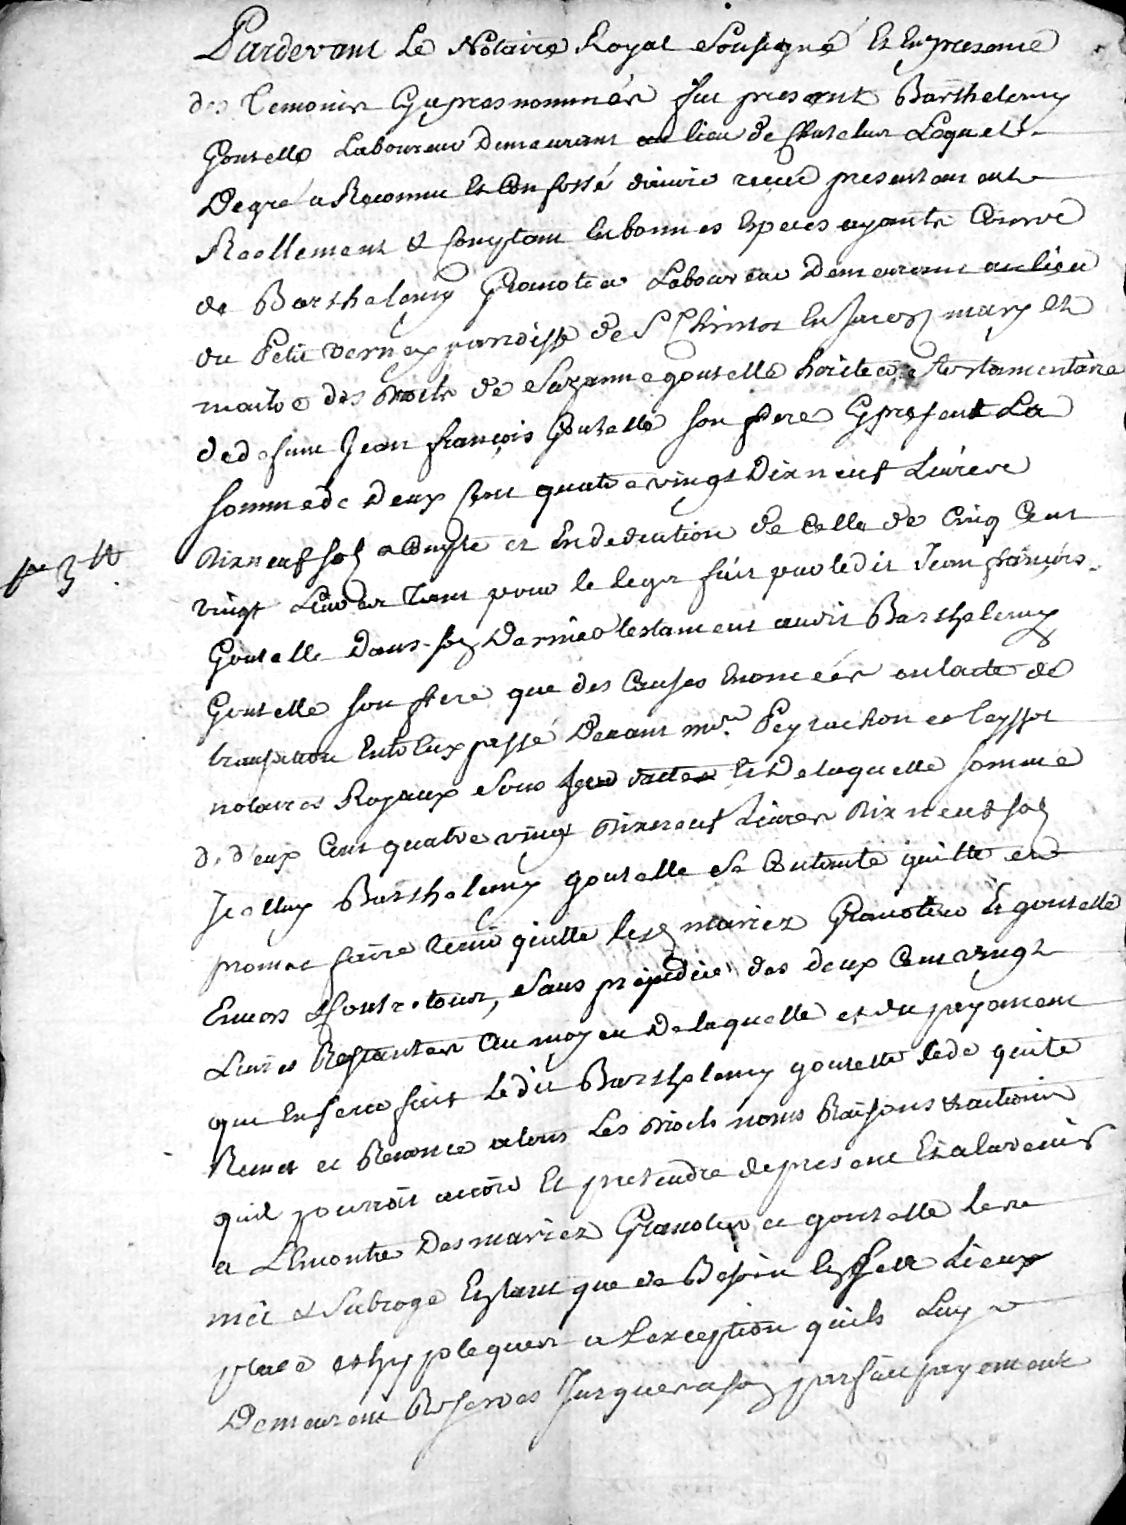 Pardevant Le Notaire Royal Soussigné Et En presence
des Temoins Cy apres nommés fut present Barthelemy
Goutelle Laboureur Demeurant au lieu de Lequel
De gré a Reconnu Et Confessé d'avoir receu presentement
Reellement & Comptant En bonnes Especes ayants Cours
de Barthelemy Granotier Laboureur Demeurant au lieu
du Petit vernay parroisse de St En Jarez mary Et
maitre des Droits de Suzanne goutelle heritiere testamentaire
de defunt Jean françois Goutelle son frere Cy present La
somme de Deux Cent quatre vingt Dix neuf Livres
Dix neuf sols a Compte et En deduction de Celle de Cinq Cent
vingt Livres Tant pour le legs fait par ledit Jean françois
Goutelle Dans son Dernier testament audit Barthelemy
Goutelle son frere que des Causes Enoncées en lacte de
transaction Entre Eux passé Devant Peyrachon et Teyssot
notaires Royaux Sous Et De laquelle somme
de deux Cent quatre vingt Dix neuf Livres Dix neuf sols
Icelluy Barthelemy goutelle Se Contente quitte et
promet faire tenir quitte lesd mariez Granotier Et goutelle
Envers & Contre tous, Sans prejudice des deux Cent vingt
Livres Restantes Au moyen De laquelle et du payement
qui En sera fait Ledit Barthelemy goutelle Cede quitte
Remet et Renonce a tous Les Droits noms Raisons & actions
quil pourroit avoir Et pretendre de present Et a lavenir
a LEncontre Des mariez Granotier et goutelle les
met & Subroge En tant que de Besoin En Lieux
place et hypoteques a Lexception quils Luy
Demeurent Reserves Jusques a son parfait payement